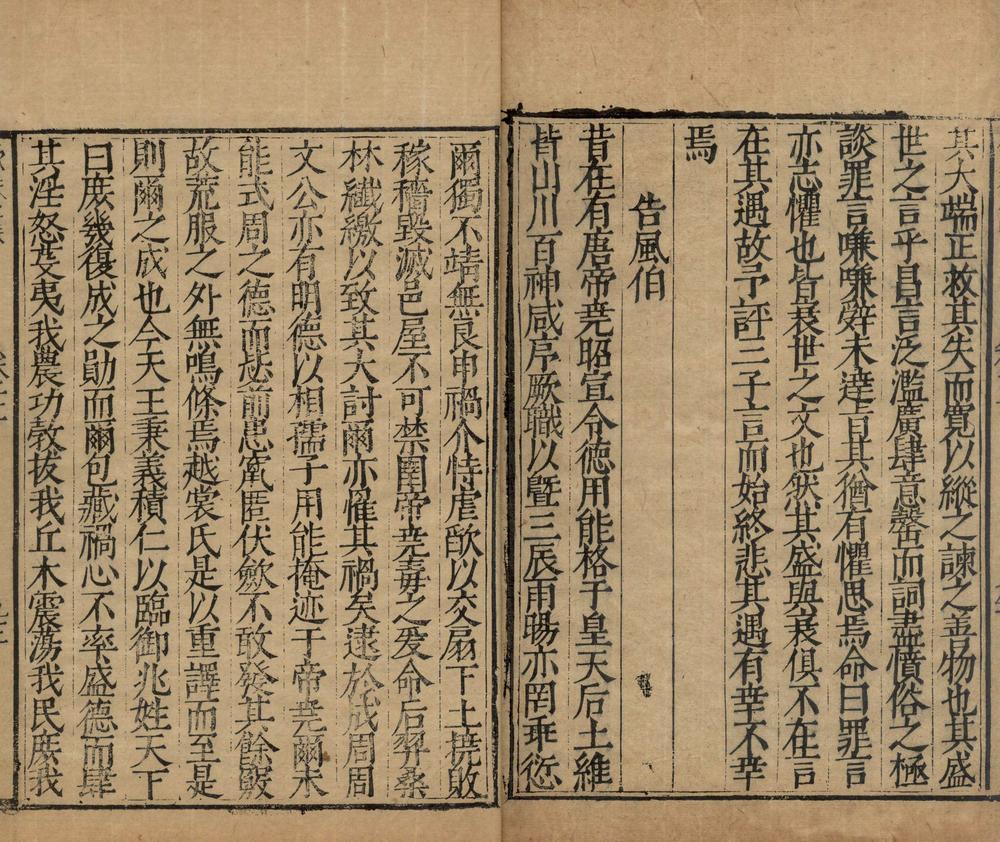 其大端正救其失而寛以縱之諫之善物也其盛
世之言乎昌言泛濫廣肆意罄而詞盡憤俗之極
談罪言嗛嗛辤未達旨其猶有懼思焉命曰罪言
亦志懼也皆衰世之文也然其盛與衰俱不在言
在其遇故予評三子言而始終悲其遇有幸不幸
焉
告風伯
昔在有唐帝堯昭宣令德用能格于皇天后土維
皆山川百神咸序厥職以曁三辰雨暘亦罔乖愆
爾獨不靖無良申禍介恃虐歐以交扇下土撓敗
稼穡毀滅邑屋不可禁圉帝堯毒之爰命后羿桑
林纎繳以致其大討爾亦懼其禍矣逮於成周周
文公亦有明德以相孺子用能掩迹于帝堯爾未
能式周之德而惩前患竄匿伏歛不敢發其餘竅
故荒服之外無鳴條焉越裳氏是以重譯而至是
則爾之成也今天王秉義積仁以臨御兆姓天下
曰庶幾復成之勛而爾包藏禍心不率盛德而肆
其淫怒芟夷我農功敎拔我丘木震蕩我民庶我